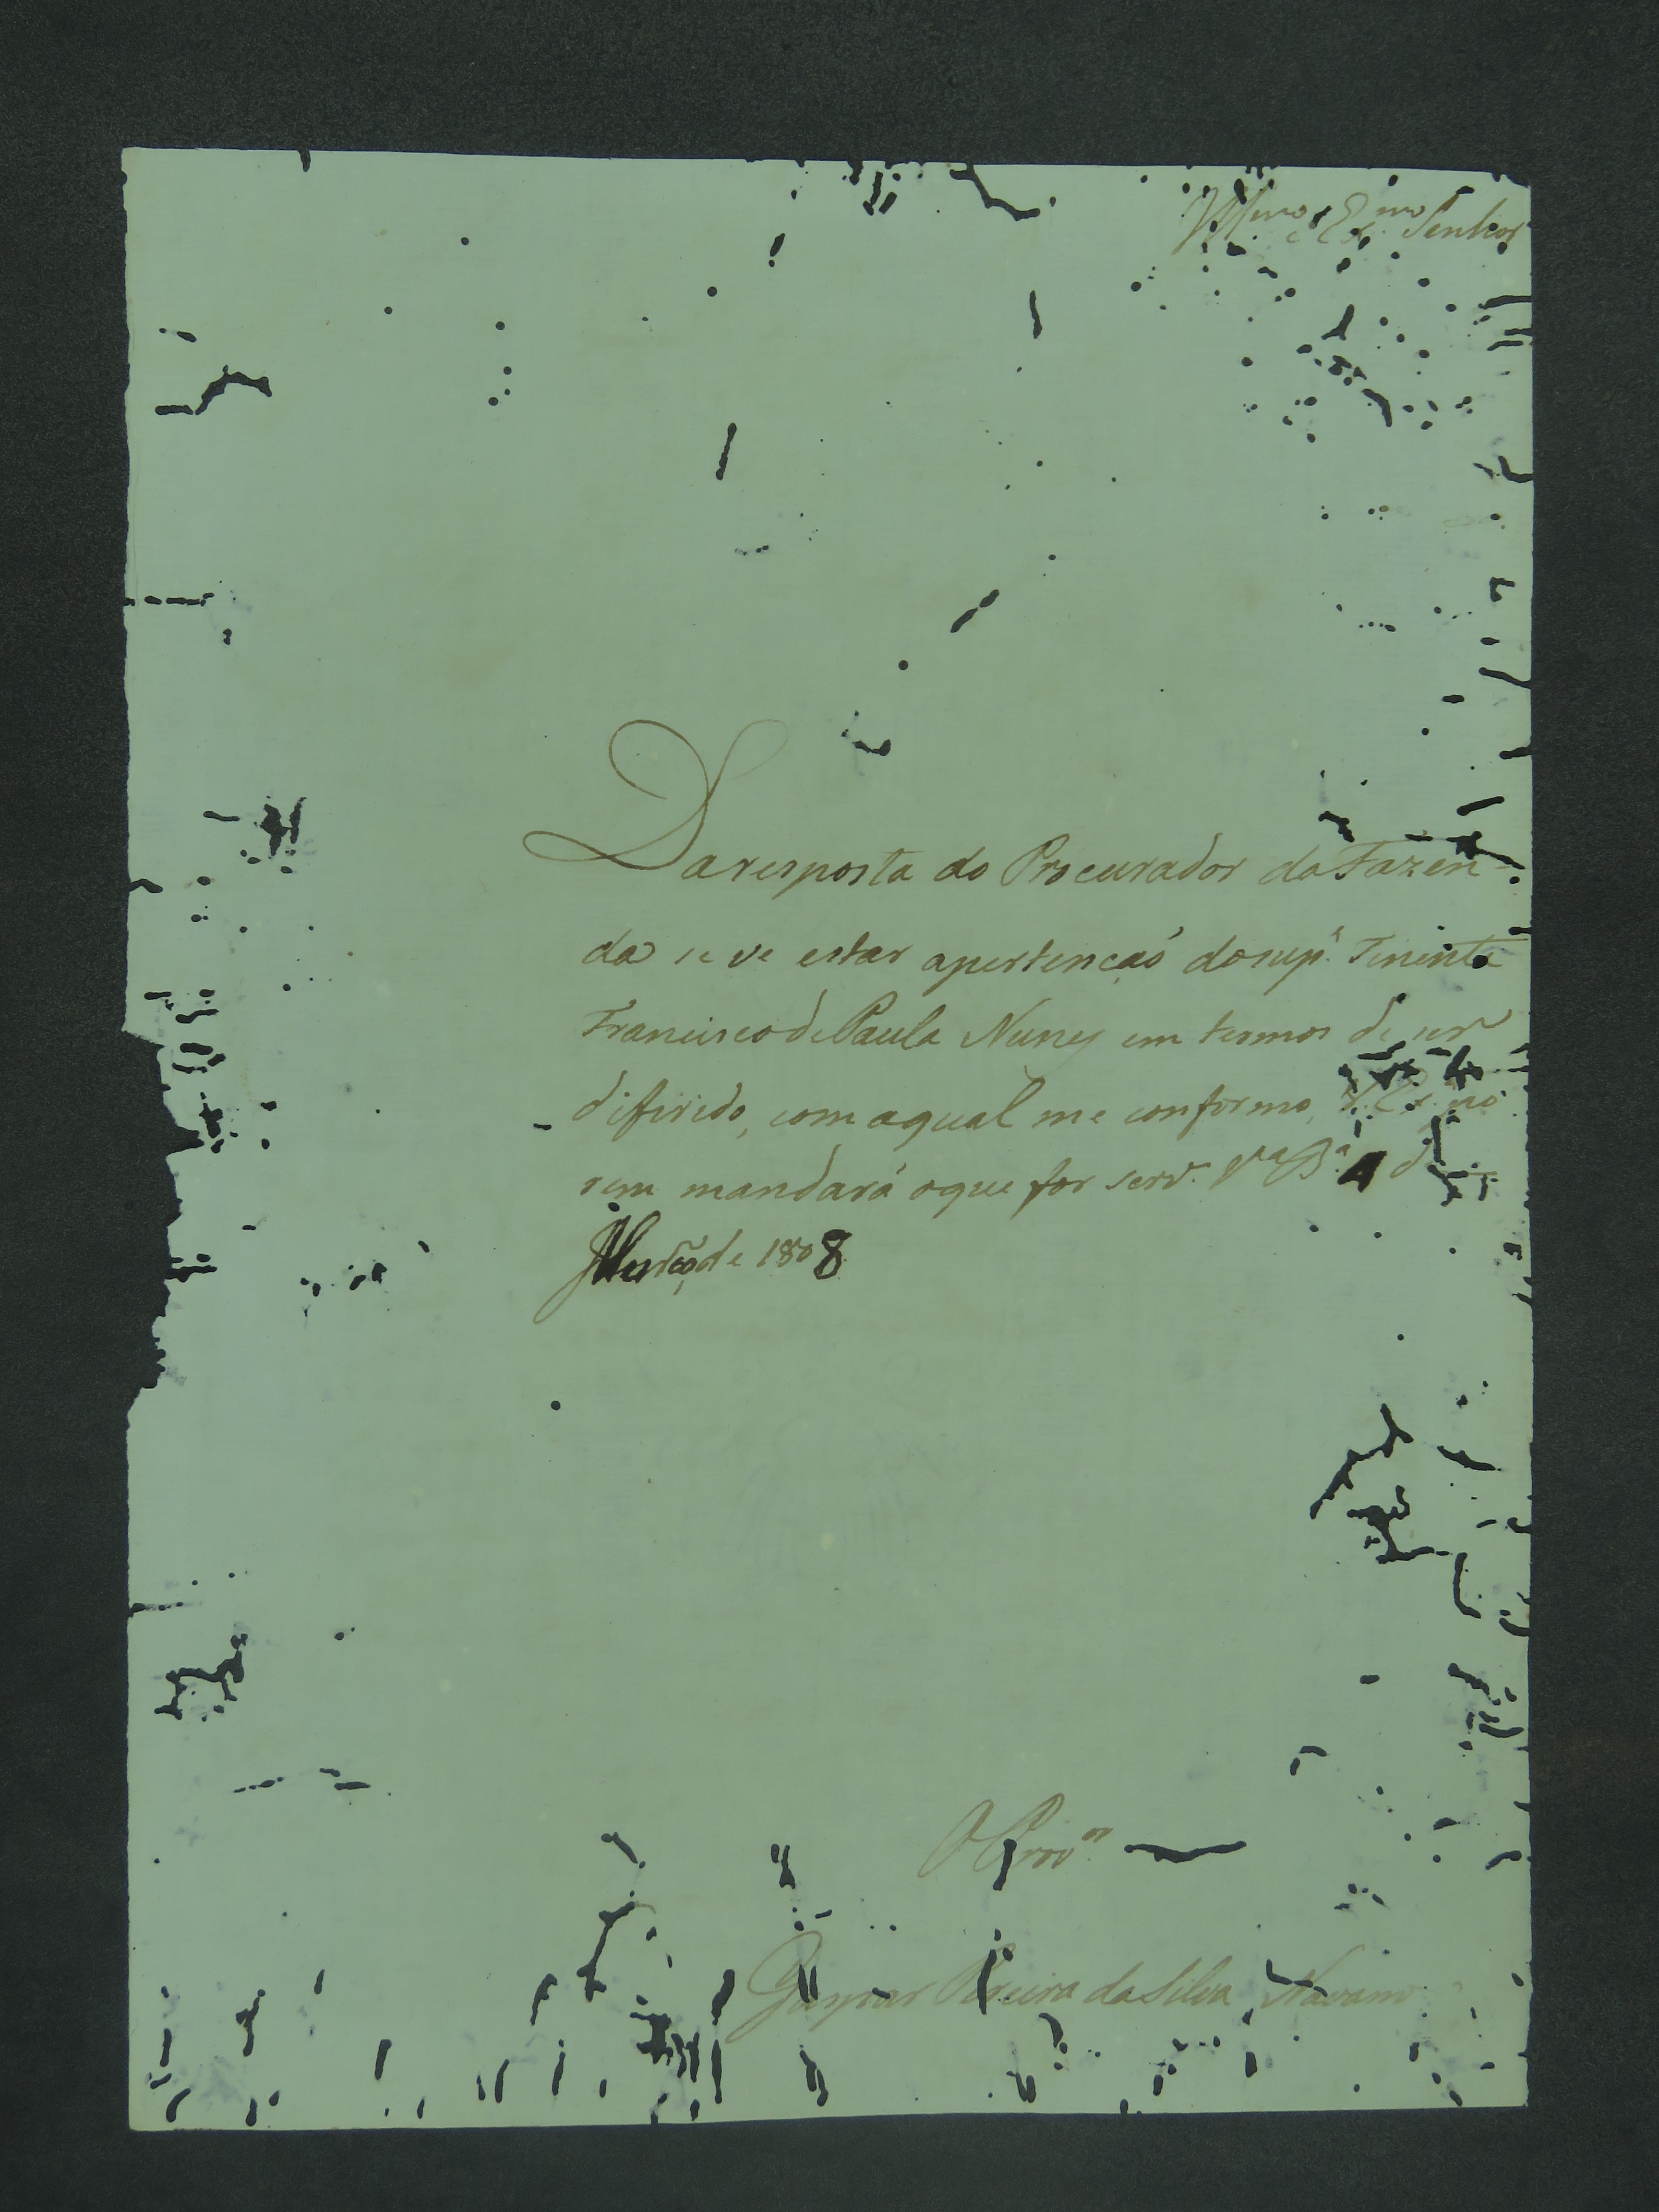 Illmo. e Exmo. Senhor
Da resposta do Procurador da Fazen
da se ve estar apertençaõ do sup.e Tenente
Francisco de Paula Nunes em termos de ser
difirido, com a qual me conformo,
rem mandará o que for serv.o V.a B.a 4 de
Março de 1808
O Prov.or
Gaspar Pereira da Silva Navarro